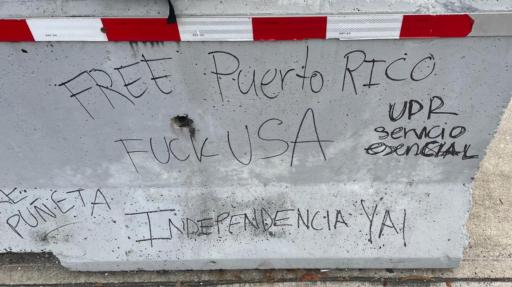 FREE Puerto RICO
FUCK USA
UPR
servicio
esencIAL
PUÑETA
INDEPENDENCIA YA!